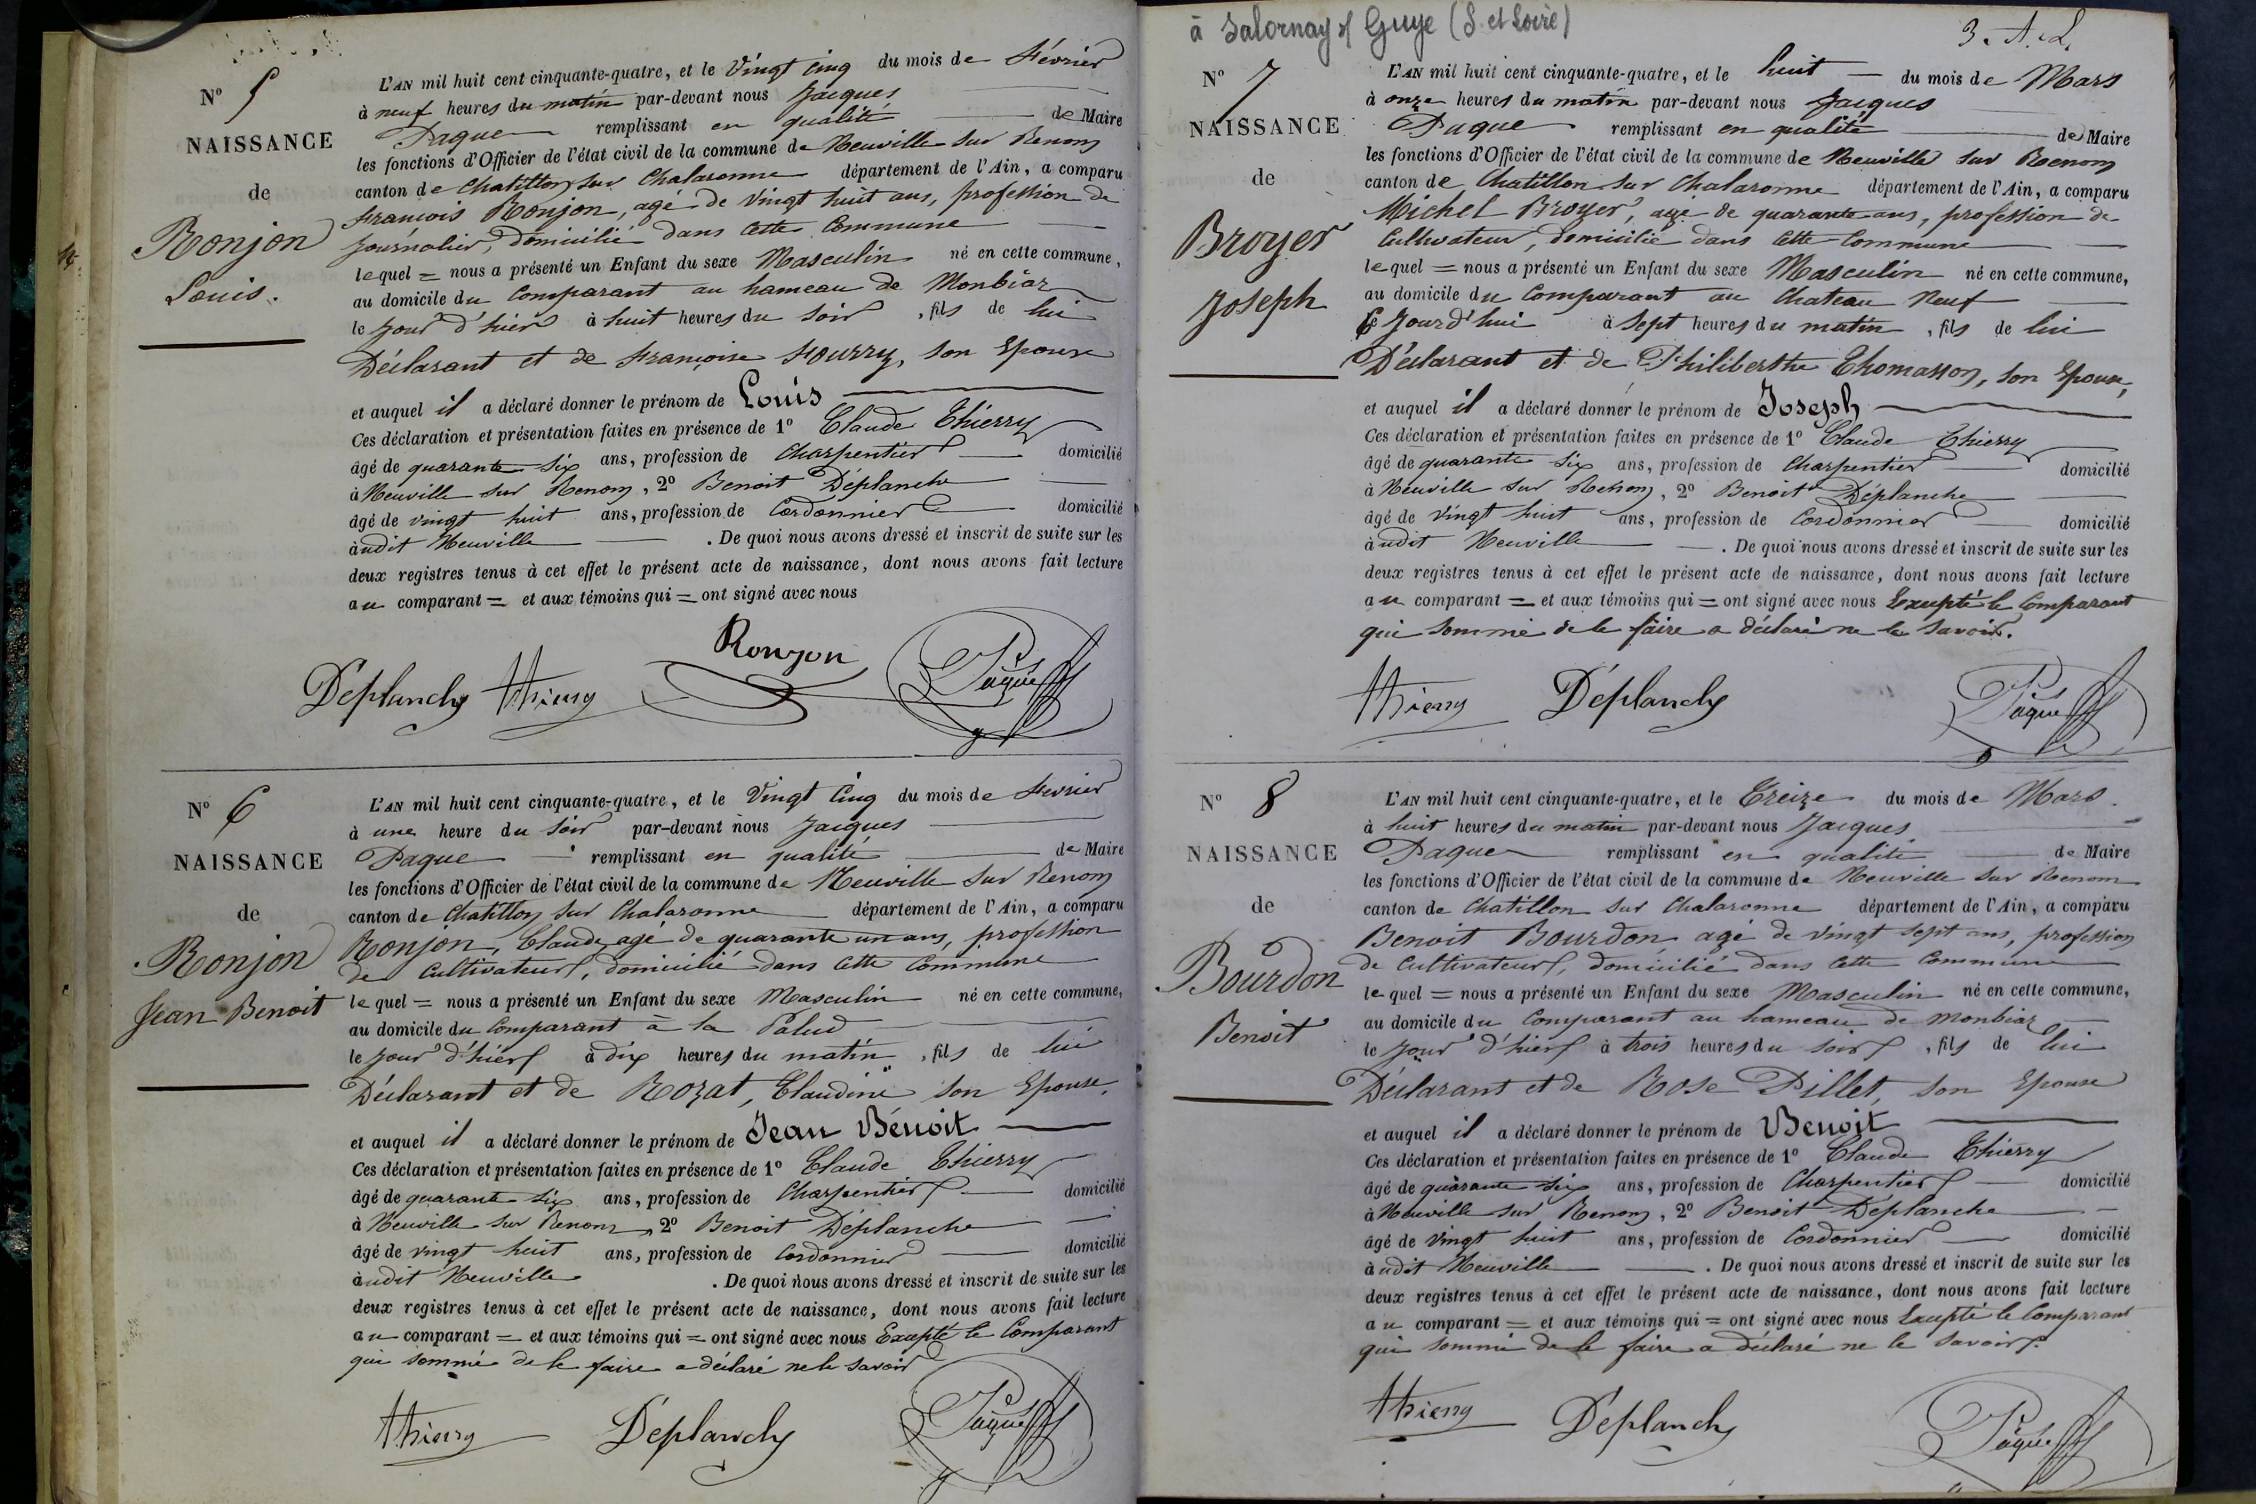 N° 5
NAISSANCE
de
Ronjon
Louis.
L'AN mil huit cent cinquante-quatre, et le Vingt cinq du mois de Février
à neuf heures du matin par-devant nous Jacques
Paque remplissant en qualité de Maire
les fonctions d'Officier de l'état civil de la commune de Neuville sur Renom
canton de Chatillon sur Chalaronne département de l'Ain, a comparu
François Ronjon, agé de vingt huit ans, profession de
Journalier, domicilié dans cette Commune
lequel = nous a présenté un Enfant du sexe Masculin né en cette commune,
au domicile du Comparant au hameau de Monbiar
le jour d'hier à huit heures du soir, fils de lui
Déclarant et de Françoise Fourry, son Epouse
et auquel il a déclaré donner le prénom de Louis
Ces déclaration et présentation faites en présence de 1° Claude Thierry
âgé de quarante six ans, profession de Charpentier domicilié
à Neuville sur Renom, 2° Benoit Déplanche
âgé de vingt huit ans, profession de Cordonnier domicilié
àudit Neuville. De quoi nous avons dressé et inscrit de suite sur les
deux registres tenus à cet effet le présent acte de naissance, dont nous avons fait lecture
au comparant = et aux témoins qui = ont signé avec nous
Ronjon
Déplanche Thierry Pâque
N° 6
NAISSANCE
de
Ronjon
Jean Benoit
L'AN mil huit cent cinquante-quatre, et le Vingt Cinq du mois de Fevrier
à une heure du soir par-devant nous Jacques
Paque remplissant en qualité de Maire
les fonctions d'Officier de l'état civil de la commune de Neuville sur Renom
canton de Chatillon sur Chalaronne département de l'Ain, a comparu
Ronjon, Claude, agé de quarante un ans, profession
de Cultivateur, domicilié dans cette Commune
lequel = nous a présenté un Enfant du sexe Masculin né en cette commune,
au domicile du Comparant à la Palud
le jour d'hier à dix heures du matin, fils de lui
Déclarant et de Rozat, Claudine son Epouse.
et auquel il a déclaré donner le prénom de Jean Bénoit
Ces déclaration et présentation faites en présence de 1° Claude Thierry
âgé de quarante six ans, profession de Charpentier domicilié
à Neuville sur Renom, 2° Benoit Déplanche
âgé de vingt huit ans, profession de Cordonnier domicilié
àudit Neuville. De quoi nous avons dressé et inscrit de suite sur les
deux registres tenus à cet effet le présent acte de naissance, dont nous avons fait lecture
au comparant = et aux témoins qui = ont signé avec nous Excepté le Comparant
qui sommé de le faire a déclaré ne le savoir
Thierry Déplanche Pâque
à Salornay s/ Guye (S. et Loire)
3. A. L.
N° 7
NAISSANCE
de
Broyer
Joseph
L'AN mil huit cent cinquante-quatre, et le huit du mois de Mars
à onze heures du matin par-devant nous Jacques
Paque remplissant en qualité de Maire
les fonctions d'Officier de l'état civil de la commune de Neuville sur Renom
canton de Chatillon sur Chalaronne département de l'Ain, a comparu
Michel Broyer, agé de quarante ans, profession de
Cultivateur, domicilié dans cette Commune
lequel = nous a présenté un Enfant du sexe Masculin né en cette commune,
au domicile du Comparant au Chateau Neuf
Ce Jourd'hui à sept heures du matin, fils de lui
Déclarant et de Philiberthe Thomasson, son Epouse,
et auquel il a déclaré donner le prénom de Joseph
Ces déclaration et présentation faites en présence de 1° Claude Thierry
âgé de quarante six ans, profession de Charpentier domicilié
à Neuville sur Renom, 2° Benoit Déplanche
âgé de vingt huit ans, profession de Cordonnier domicilié
àudit Neuville. De quoi nous avons dressé et inscrit de suite sur les
deux registres tenus à cet effet le présent acte de naissance, dont nous avons fait lecture
au comparant = et aux témoins qui = ont signé avec nous Excepté le Comparant
qui sommé de le faire a déclaré ne le savoir.
Thierry Déplanche Pâque
N° 8
NAISSANCE
de
Bourdon
Benoit
L'AN mil huit cent cinquante-quatre, et le Treize du mois de Mars
à huit heures du matin par-devant nous Jacques
Paque remplissant en qualité de Maire
les fonctions d'Officier de l'état civil de la commune de Neuville sur Renom
canton de Chatillon sur Chalaronne département de l'Ain, a comparu
Benoit Bourdon agé de vingt sept ans, profession
de Cultivateur, domicilié dans cette Commune
lequel = nous a présenté un Enfant du sexe Masculin né en cette commune,
au domicile du Comparant au hameau de Monbiar
le jour d'hier à trois heures du soir, fils de lui
Déclarant et de Rose Pillet, son Epouse
et auquel il a déclaré donner le prénom de Benoit
Ces déclaration et présentation faites en présence de 1° Claude Thierry
âgé de quarante six ans, profession de Charpentier domicilié
à Neuville sur Renom, 2° Benoit Déplanche
âgé de vingt huit ans, profession de Cordonnier domicilié
àudit Neuville. De quoi nous avons dressé et inscrit de suite sur les
deux registres tenus à cet effet le présent acte de naissance, dont nous avons fait lecture
au comparant = et aux témoins qui = ont signé avec nous Excepté le Comparant
qui sommé de le faire a déclaré ne le savoir.
Thierry Déplanche Pâque